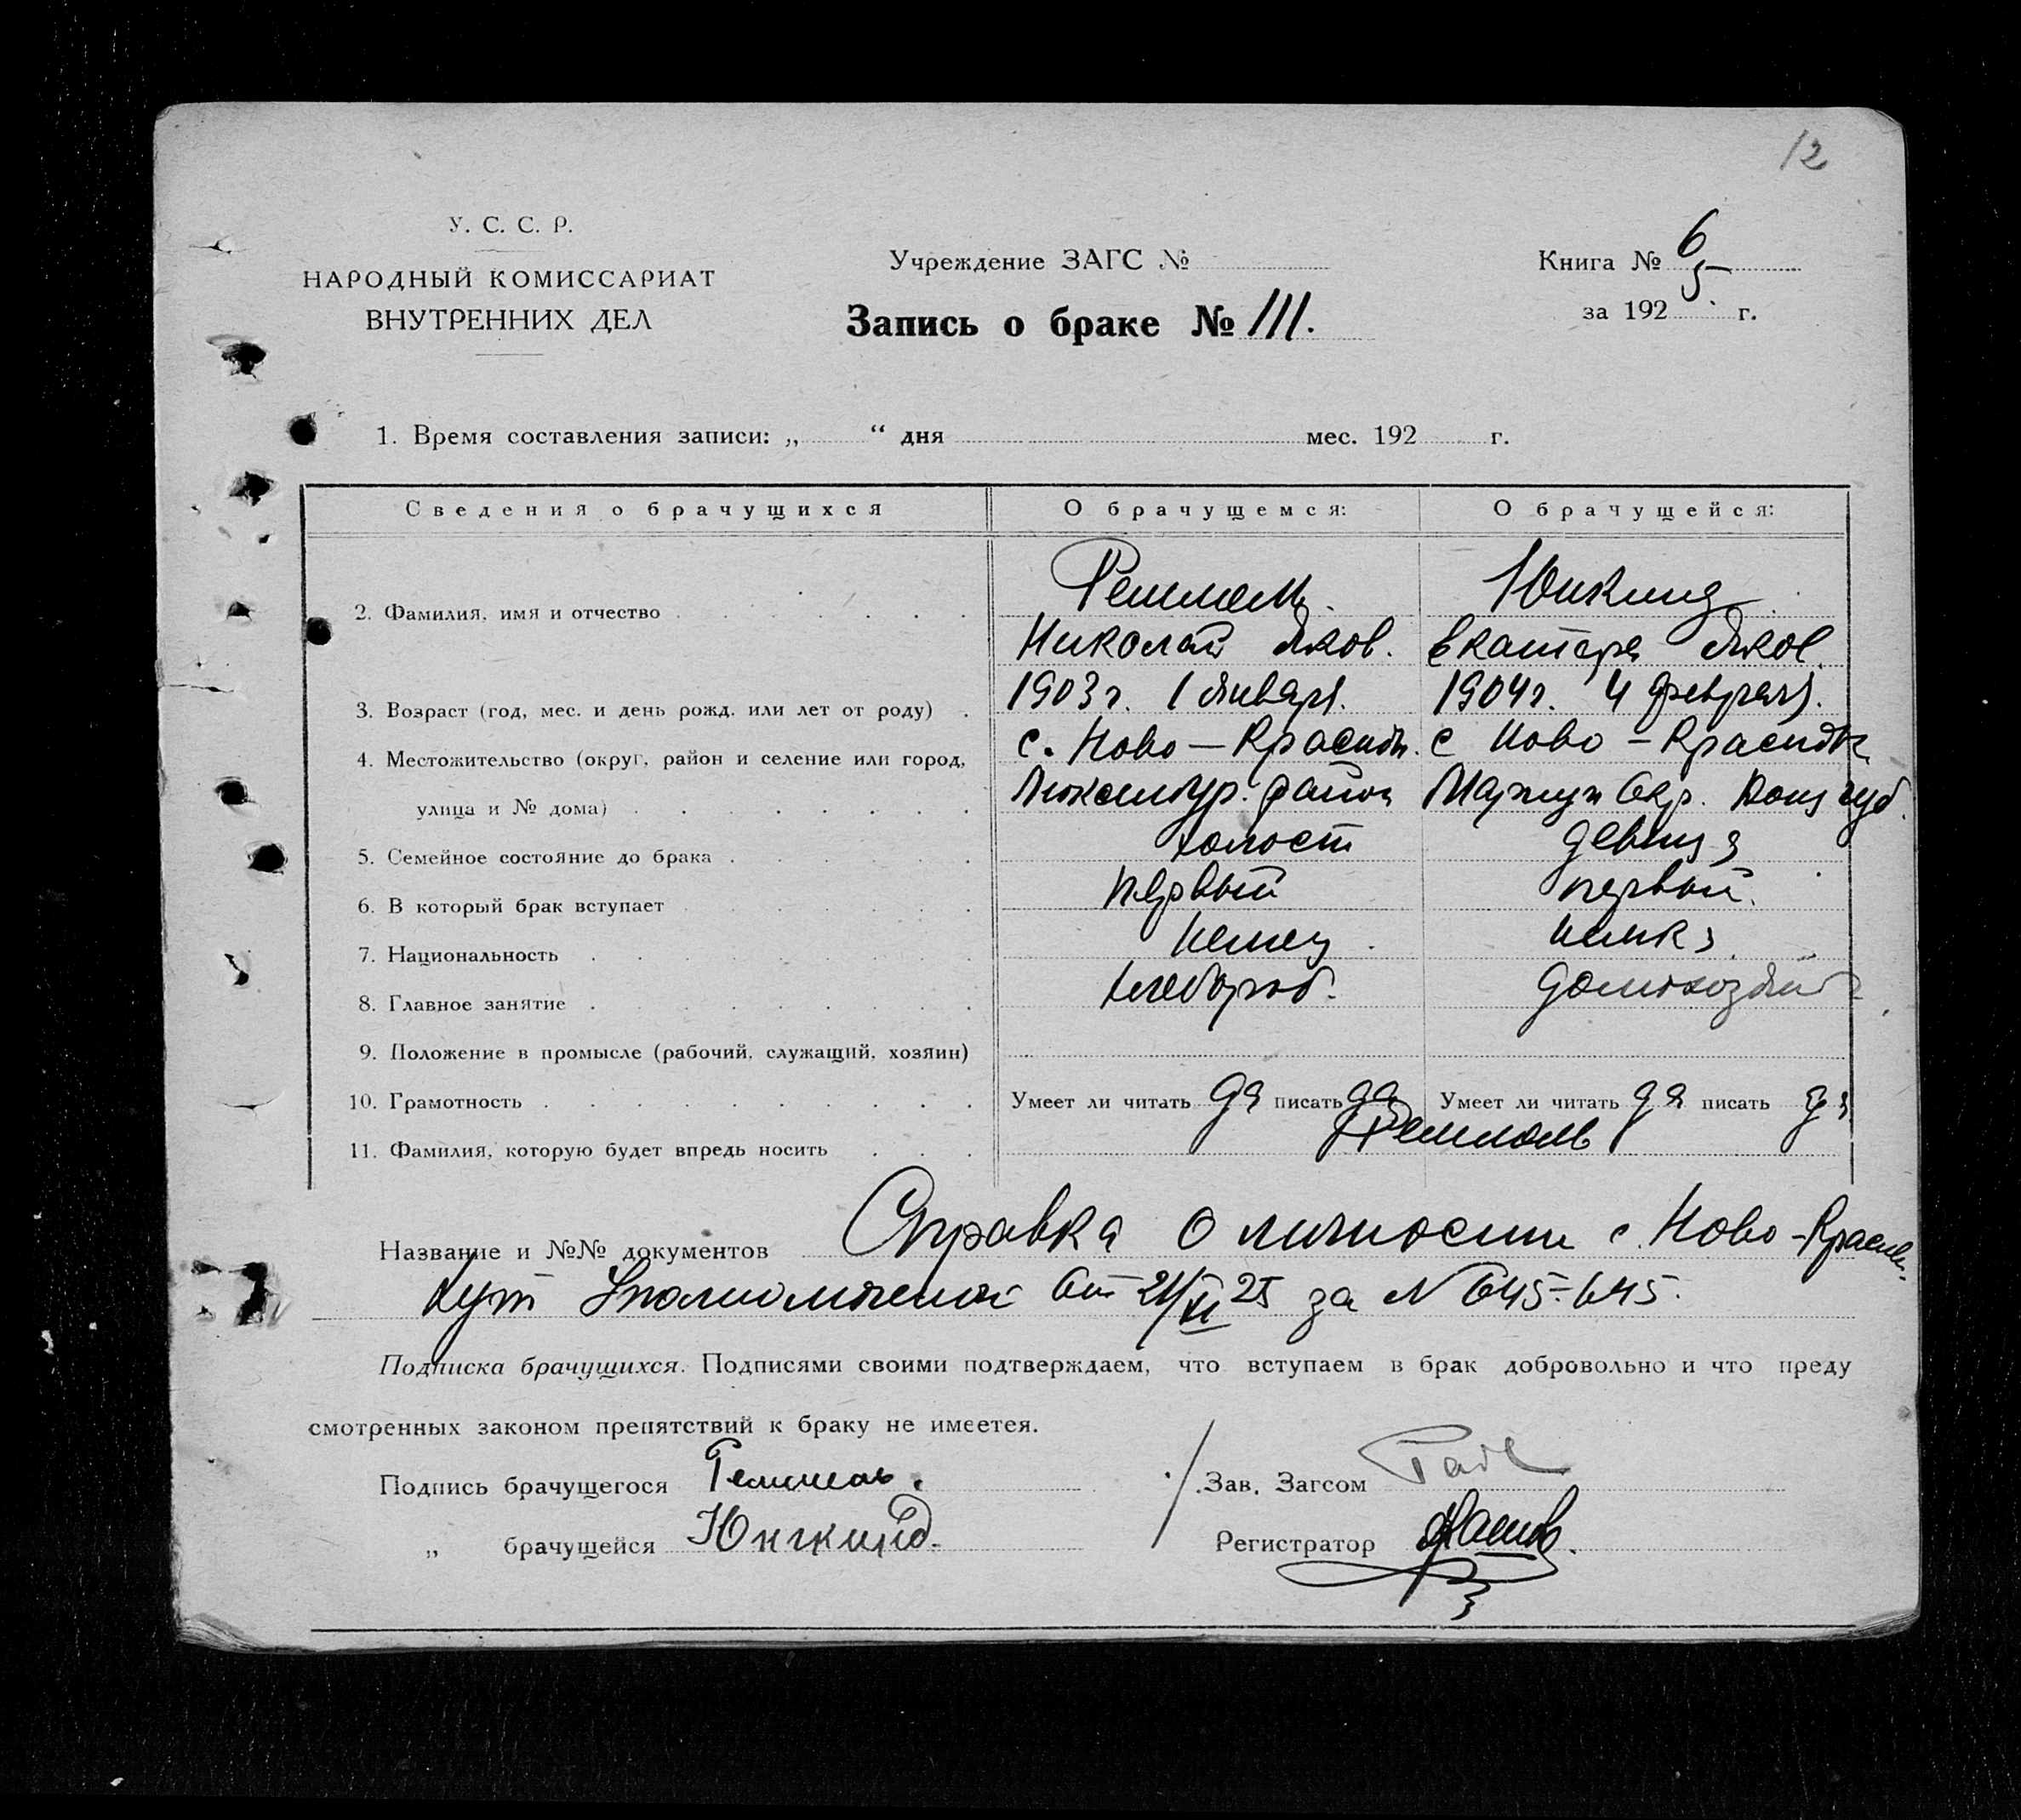 12
У. С. С. Р.
НАРОДНЫЙ КОМИССАРИАТ
ВНУТРЕННИХ ДЕЛ
Учреждение ЗАГС №
Запись о браке № 111.
Книга № 6
за 192 5 г.
1. Время составления записи: „ “ дня мес. 192 г.
Сведения о брачущихся О брачущемся: О брачущейся:
2. Фамилия, имя и отчество Реммель. Юнкинд
Николай Яков. Екатера Яков.
3. Возраст (год, мес. и день рожд. или лет от роду) 1903 г. 1 Января. 1904 г. 4 февраля.
4. Местожительство (округ, район и селение или город, с. Ново — с Ново —
улица и № дома) район Окр. губ.
5. Семейное состояние до брака холост девица
6. В который брак вступает первый первый.
7. Национальность немец немка
8. Главное занятие хлебороб. домохозяй
9. Положение в промысле (рабочий, служащий, хозяин)
10. Грамотность Умеет ли читать да писать да Умеет ли читать да писать да
11. Фамилия, которую будет впредь носить Реммель
Название и №№ документов Справка о личности с. Ново -
от 21/XI 25 за N 645-645.
Подписка брачущихся. Подписями своими подтверждаем, что вступаем в брак добровольно и что преду
смотренных законом препятствий к браку не имеется.
Подпись брачущегося Реммель. Зав. Загсом
„ брачущейся Юнгкинд. Регистратор